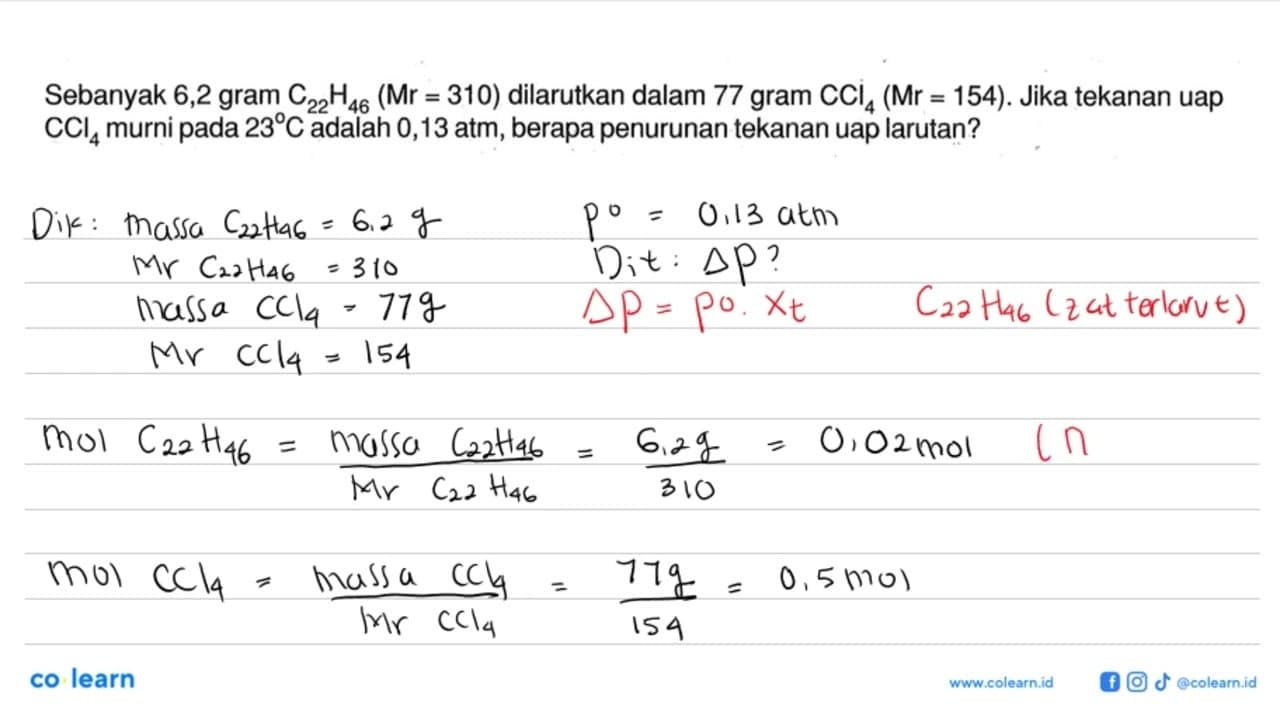 Sebanyak 6,2 gram C₂₂H₄₆ (Mr = 310) dilarutkan dalam 77 gram CCl₄ (Mr = 154). Jika tekanan uap
CCl₄ murni pada 23°C adalah 0,13 atm, berapa penurunan tekanan uap larutan?
Dik: massa C₂₂H₄₆ = 6,2 g
Mr C₂₂H₄₆ = 310
massa CCl₄ = 77g
Mr CCl₄ = 154
P° = 0,13 atm
Dit: ΔP?
ΔP = P°. Xt
C₂₂H₄₆ (zat terlarut)
mol C₂₂H₄₆ = massa C₂₂H₄₆ / Mr C₂₂H₄₆ = 6,2g / 310 = 0,02 mol (n
mol CCl₄ = massa CCl₄ / Mr CCl₄ = 77g / 154 = 0,5 mol
co learn
www.colearn.id
@colearn.id